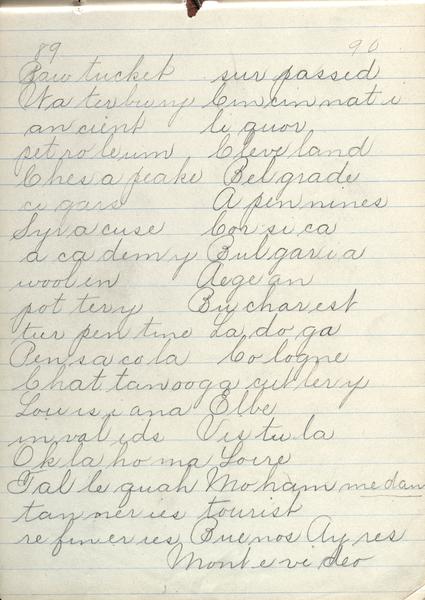 89 90
Paw tucket sur passed
Wa ter bury Cin cin nat i
an cient li quor
pet ro le um Cleve land
Ches a peake Bel grade
ci gars A pen nines
Syr a cuse Cor si ca
a cad em y Bul gar i a
wool en Ae ge an
pot ter y Bu char est
tur pen tine La do ga
Pen sa co la Co logne
Chat ta noo ga cut ler y
Lou is i ana Elbe
in val ids Vis tu la
Ok la ho ma Loire
Tal le quah Mo ham me dan
tan ner ies tour ist
re fin er ies Bue nos Ay res
Mont e vi deo